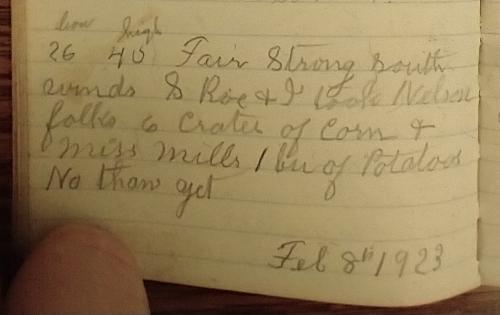 low high
26 40 Fair Strong South
winds S Roe & I took Nelson
folks 6 Crates of Corn &
Miss Mills 1 bu of Potatoes
No thaw yet
Feb 8th 1923